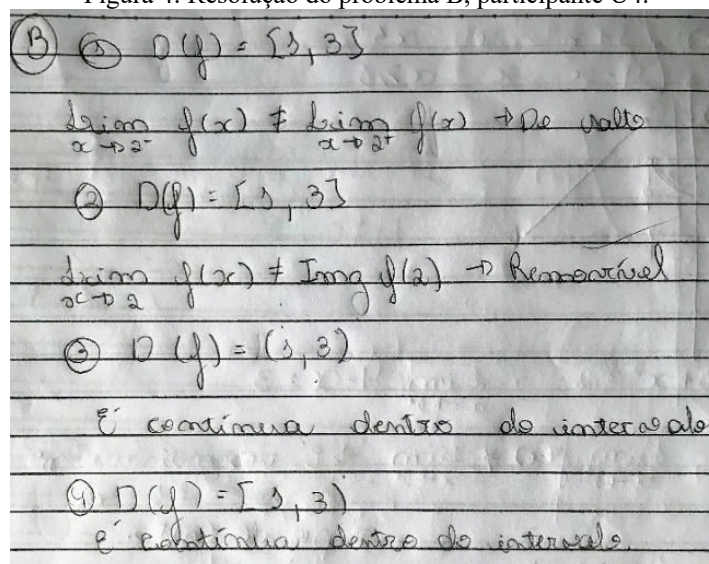 Figura 4: Resolução do problema B, participante C4.
B ① D(f) = [1, 3]
Lim x→2⁻ f(x) ≠ Lim x→2⁺ f(x) → De salto
② D(f) = [1, 3]
Lim x→2 f(x) ≠ Img f(2) → Removível
③ D(f) = (1, 3)
É contínua dentro do intervalo
④ D(f) = [1, 3)
É contínua dentro do intervalo.